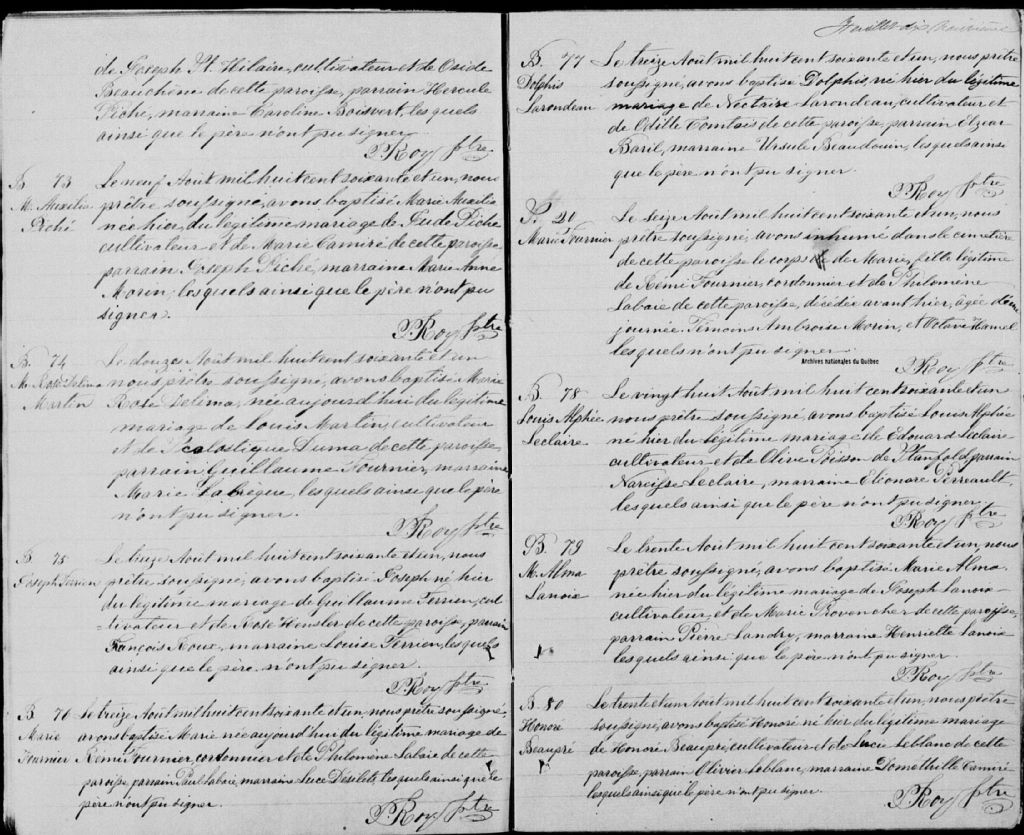 de Joseph St. Hilaire, cultivateur et de Ozide
Beauchêne de cette paroisse, parrain Hercule
Piché, marraine Caroline Boisvert, lesquels
ainsi que le père n'ont pu signer.
P. Roy ptre
B. 73
M. Auxilia
Piché
Le neuf Août mil huit cent soixante et un, nous
prêtre soussigné, avons baptisé Marie Auxilia
née hier, du légitime mariage de Jude Piché
cultivateur et de Marie Camiré de cette paroisse
parrain Joseph Piché, marraine Marie Anne
Morin, lesquels ainsi que le père n'ont pu
signer.
P. Roy ptre
B. 74
M. Rose Delima
Martin
Le douze Août mil huit cent soixante et un
nous prêtre soussigné, avons baptisé Marie
Rose Delima, née aujourd'hui du légitime
mariage de Louis Martin, cultivateur
et de Scolastique Duma de cette paroisse,
parrain Guillaume Fournier, marraine
Marie Labrèque, lesquels ainsi que le père
n'ont pu signer.
P. Roy ptre
B. 75
Joseph Terrien
Le treize Août mil huit cent soixante et un, nous
prêtre soussigné, avons baptisé Joseph né hier
du légitime mariage de Guillaume Terrien, cul-
tivateur et de Rose Hensler de cette paroisse, parrain
François Roux, marraine Louise Terrien, lesquels
ainsi que le père n'ont pu signer.
P. Roy ptre
B. 76
Marie
Fournier
Le treize Août mil huit cent soixante et un, nous prêtre soussigné,
avons baptisé Marie née aujourd'hui du légitime mariage de
Rémi Fournier, cordonnier et de Philomène Labaie de cette
paroisse, parrain Paul Labaie, marraine Luce Desilets lesquels ainsi que le
père n'ont pu signer.
P. Roy ptre
Feuillet
B. 77
Dolphis
Larondeau
Le treize Août mil huit cent soixante et un, nous prêtre
soussigné, avons baptisé Dolphis, né hier du légitime
mariage de Nectaire Larondeau, cultivateur et
de Odille Comtois de cette paroisse, parrain Elzear
Baril, marraine Ursule Beaudouin, lesquels ainsi
que le père n'ont pu signer.
P. Roy ptre
S. 20
Marie Fournier
Le seize Août mil huit cent soixante et un, nous
prêtre soussigné, avons inhumé dans le cimetière
de cette paroisse le corps de Marie, fille légitime
de Rémi Fournier, cordonnier et de Philomène
Labaie de cette paroisse, décédée avant hier, âgée d'une
journée. Témoins Ambroise Morin, et Octave Hamel
lesquels n'ont pu signer.
Archives nationales du Québec
P. Roy ptre
B. 78
Louis Alphée
Leclaire
Le vingt huit Août mil huit cent soixante et un
nous prêtre soussigné, avons baptisé Louis Alphée
né hier du légitime mariage de Edouard Leclaire
cultivateur et de Olive Poisson de Stanfold, parrain
Narcisse Leclaire, marraine Eléonore Perreault,
lesquels ainsi que le père n'ont pu signer.
P. Roy ptre
B. 79
M. Alma
Lanoie
Le trente Août mil huit cent soixante et un, nous
prêtre soussigné, avons baptisé Marie Alma
née hier du légitime mariage de Joseph Lanoie
cultivateur, et de Marie Provencher de cette paroisse,
parrain Pierre Landry, marraine Henriette Lanoie
lesquels ainsi que le père n'ont pu signer.
P. Roy ptre
B. 80
Honoré
Beaupré
Le trente et un Août mil huit cent soixante et un, nous prêtre
soussigné, avons baptisé Honoré né hier du légitime mariage
de Honoré Beaupré, cultivateur et de Lucie Leblanc de cette
paroisse, parrain Olivier Leblanc, marraine Domethille Camiré
lesquels ainsi que le père n'ont pu signer.
P. Roy ptre